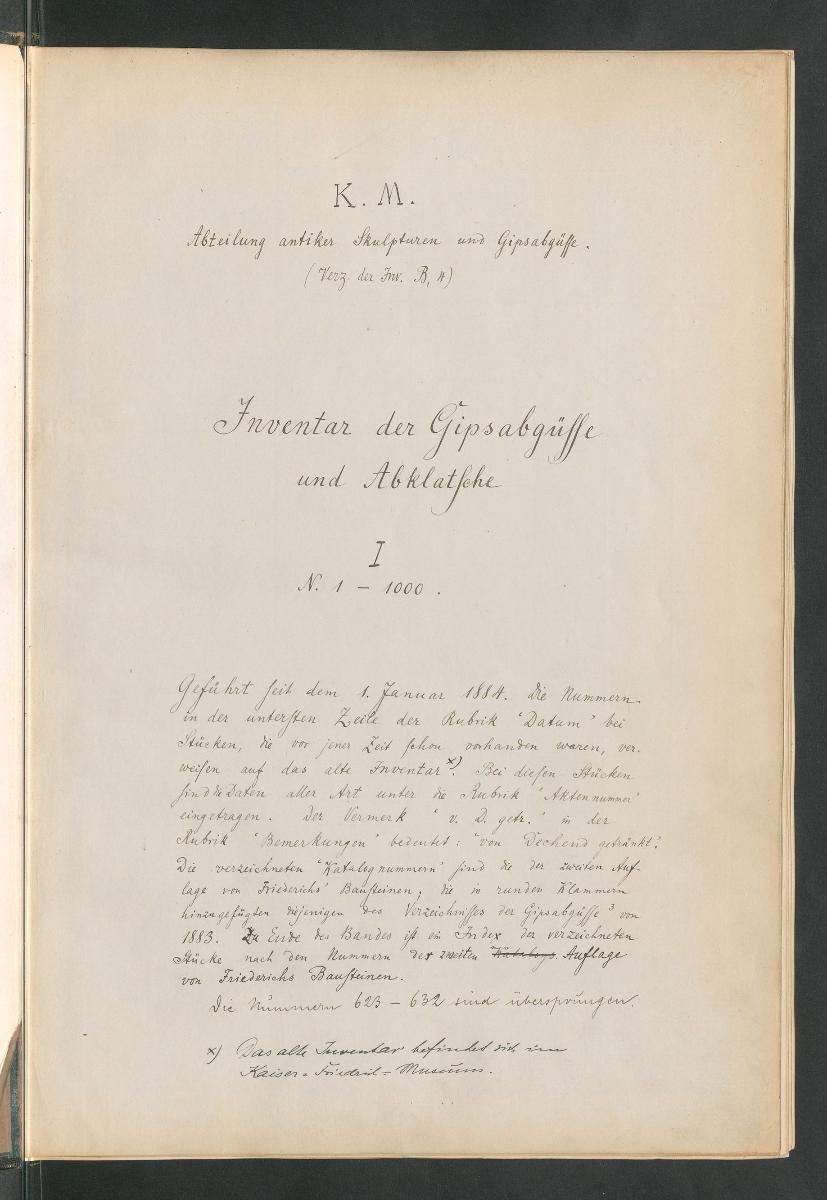 K. M.
Abteilung antiker Skulpturen und Gipsabgüsse.
(Verz. der Inv. B, 4)
Inventar der Gipsabgüsse
und Abklatsche
I
N. 1 – 1000.
Geführt seit dem 1. Januar 1884. Die Nummern
in der untersten Zeile der Rubrik 'Datum' bei
Stücken, die vor jener Zeit schon vorhanden waren, ver-
weisen auf das alte Inventar x). Bei diesen Stücken
sind die Daten aller Art unter die Rubrik 'Aktennummer'
eingetragen. Der Vermerk 'v. D. getr.' in der
Rubrik 'Bemerkungen' bedeutet: 'von Dechend getränkt'.
Die verzeichneten 'Katalognummern' sind die der zweiten Auf-
lage von Friederichs' Bausteinen; die in runden Klammern
hinzugefügten diejenigen des Verzeichnisses der Gipsabgüsse³ von
1883. Zu Ende des Bandes ist ein Index der verzeichneten
Stücke nach den Nummern der zweiten Katalogs Auflage
von Friederichs Bausteinen.
Die Nummern 623 – 632 sind übersprungen.
x) Das alte Inventar befindet sich im
Kaiser-Friedrich-Museum.